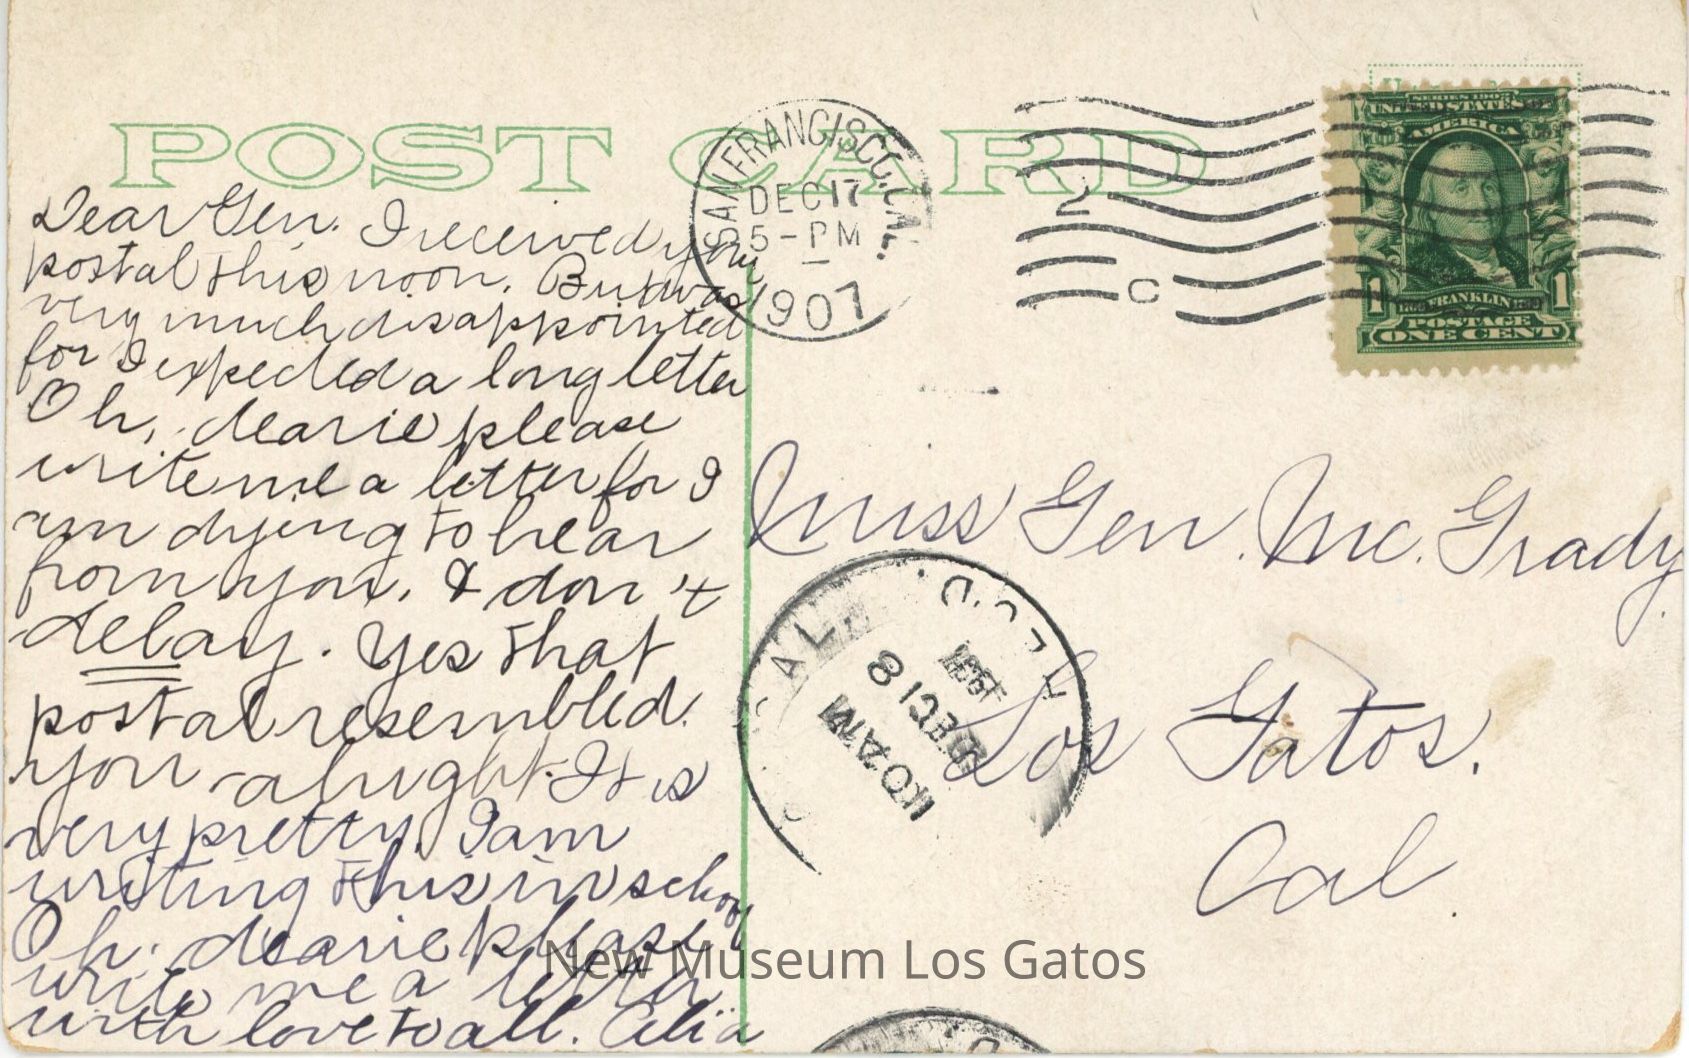 POST CARD
SAN FRANCISCO, CAL.
DEC 17
5-PM
1907
2
C
SERIES 1902
UNITED STATES OF
AMERICA
1 FRANKLIN 1
POSTAGE
ONE CENT
Dear Gen. I received your
postal this noon. But was
very much disappointed
for I expected a long letter
Oh, dearie please
write me a letter for I
am dying to hear
from you. & don't
delay. Yes that
postal resembled
you alright. It is
very pretty. I am
writing this in school
Oh. dearie please
write me a letter
with love to all. Celia
Miss Gen. Mc. Grady
Los Gatos.
Cal.
CAL.
REC'D.
DEC 18
10 AM
1907
New Museum Los Gatos